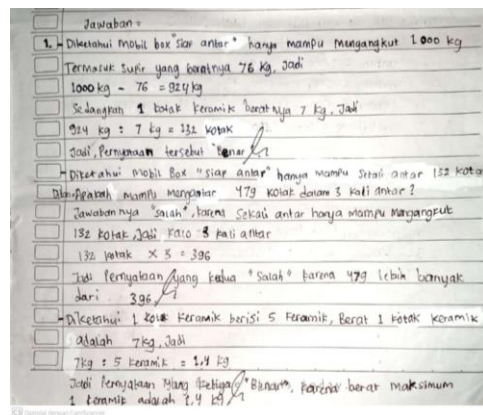 Jawaban =
1. - Diketahui mobil box "siap antar" hanya mampu mengangkut 1.000 kg
Termasuk supir yang beratnya 76 kg, Jadi
1000 kg - 76 = 924 kg
Sedangkan 1 kotak keramik beratnya 7 kg, Jadi
924 kg : 7 kg = 132 kotak
Jadi, Pernyataan tersebut "Benar"
- Diketahui Mobil Box "siap antar" hanya mampu Sekali antar 132 kota
Apakah mampu mengantar 479 kotak dalam 3 kali antar ?
Jawabannya "salah", karena sekali antar hanya mampu mengangkut
132 kotak, Jadi kalo 3 kali antar
132 kotak × 3 = 396
Jadi Pernyataan yang kedua "Salah" karena 479 lebih banyak
dari 396
- Diketahui 1 kotak keramik berisi 5 keramik, Berat 1 kotak keramik
adalah 7 kg, Jadi
7kg : 5 keramik = 1,4 kg
Jadi Pernyataan yang ketiga "Benar", karena berat maksimum
1 keramik adalah 1,4 kg
CS